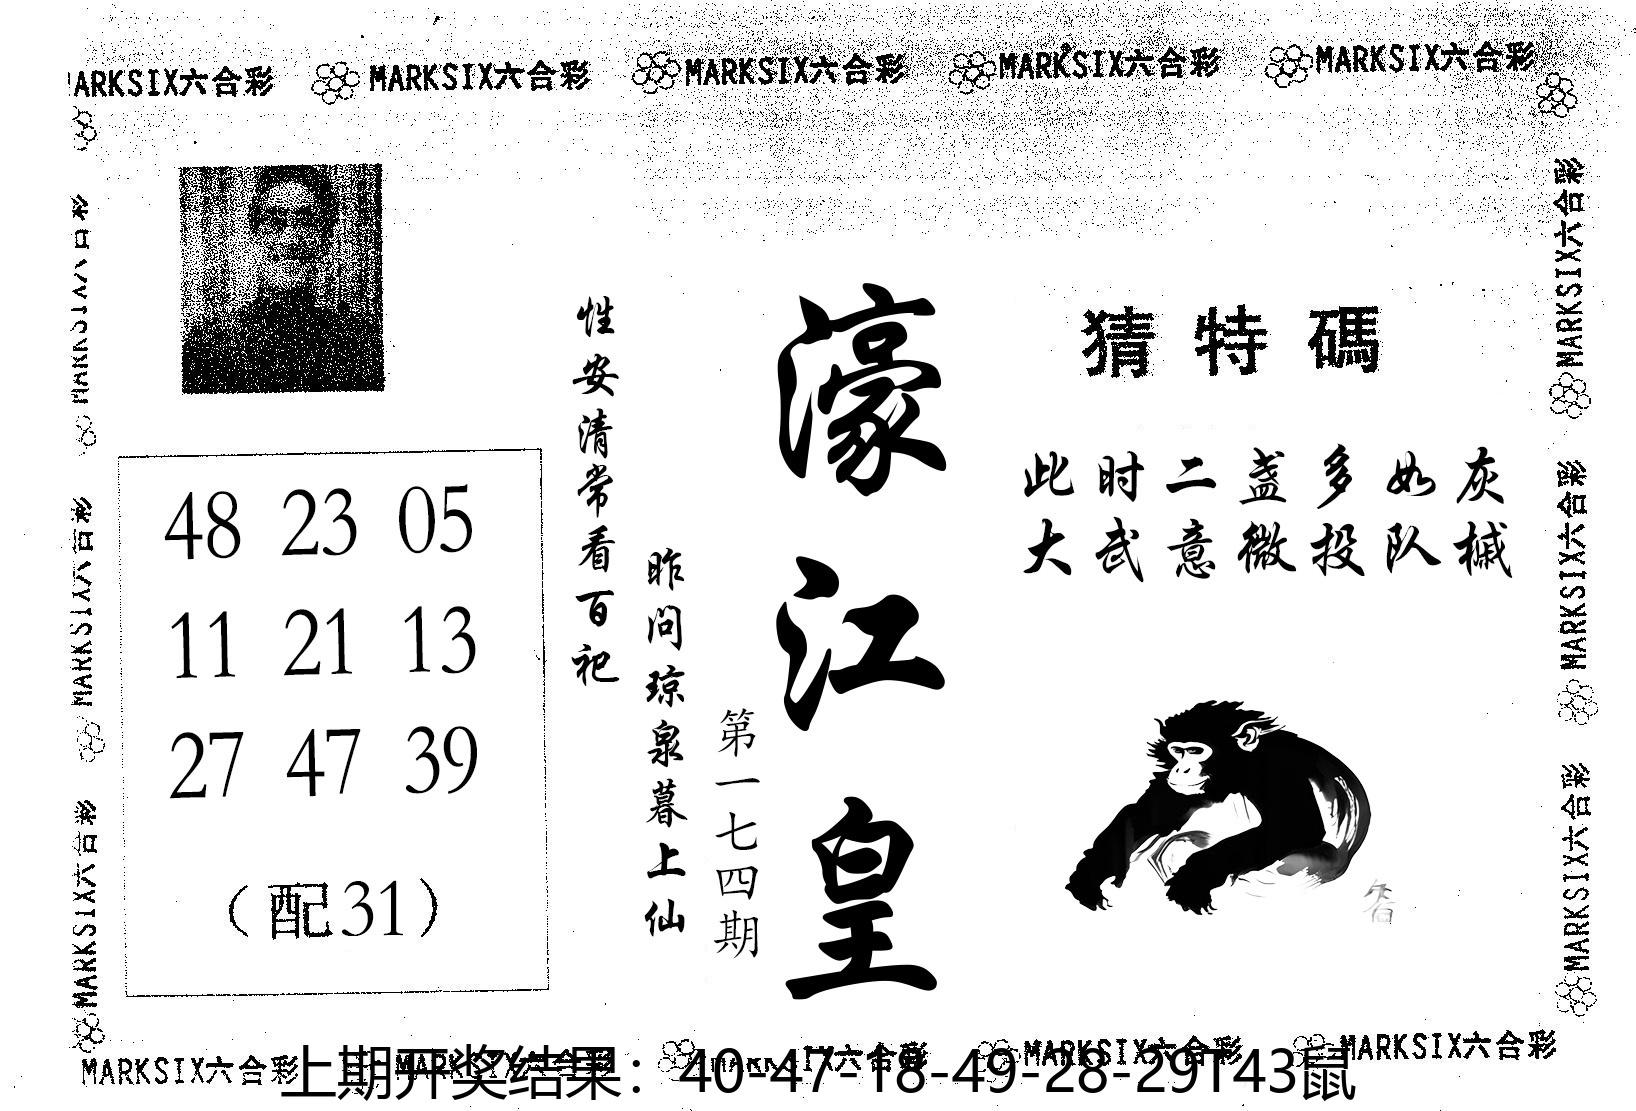 MARKSIX六合彩 MARKSIX六合彩 MARKSIX六合彩 MARKSIX六合彩 MARKSIX六合彩
MARKSIX六合彩
MARKSIX六合彩
MARKSIX六合彩
48 23 05
11 21 13
27 47 39
（配31）
性安清常看百祀
昨问琼泉暮上仙
第一七四期
濠江皇
猜特碼
此时二盏多如灰
大武意微投队槭
MARKSIX六合彩
MARKSIX六合彩
MARKSIX六合彩
MARKSIX六合彩 MARKSIX六合彩 MARKSIX六合彩 MARKSIX六合彩 MARKSIX六合彩
上期开奖结果：40-47-18-49-28-29T43鼠